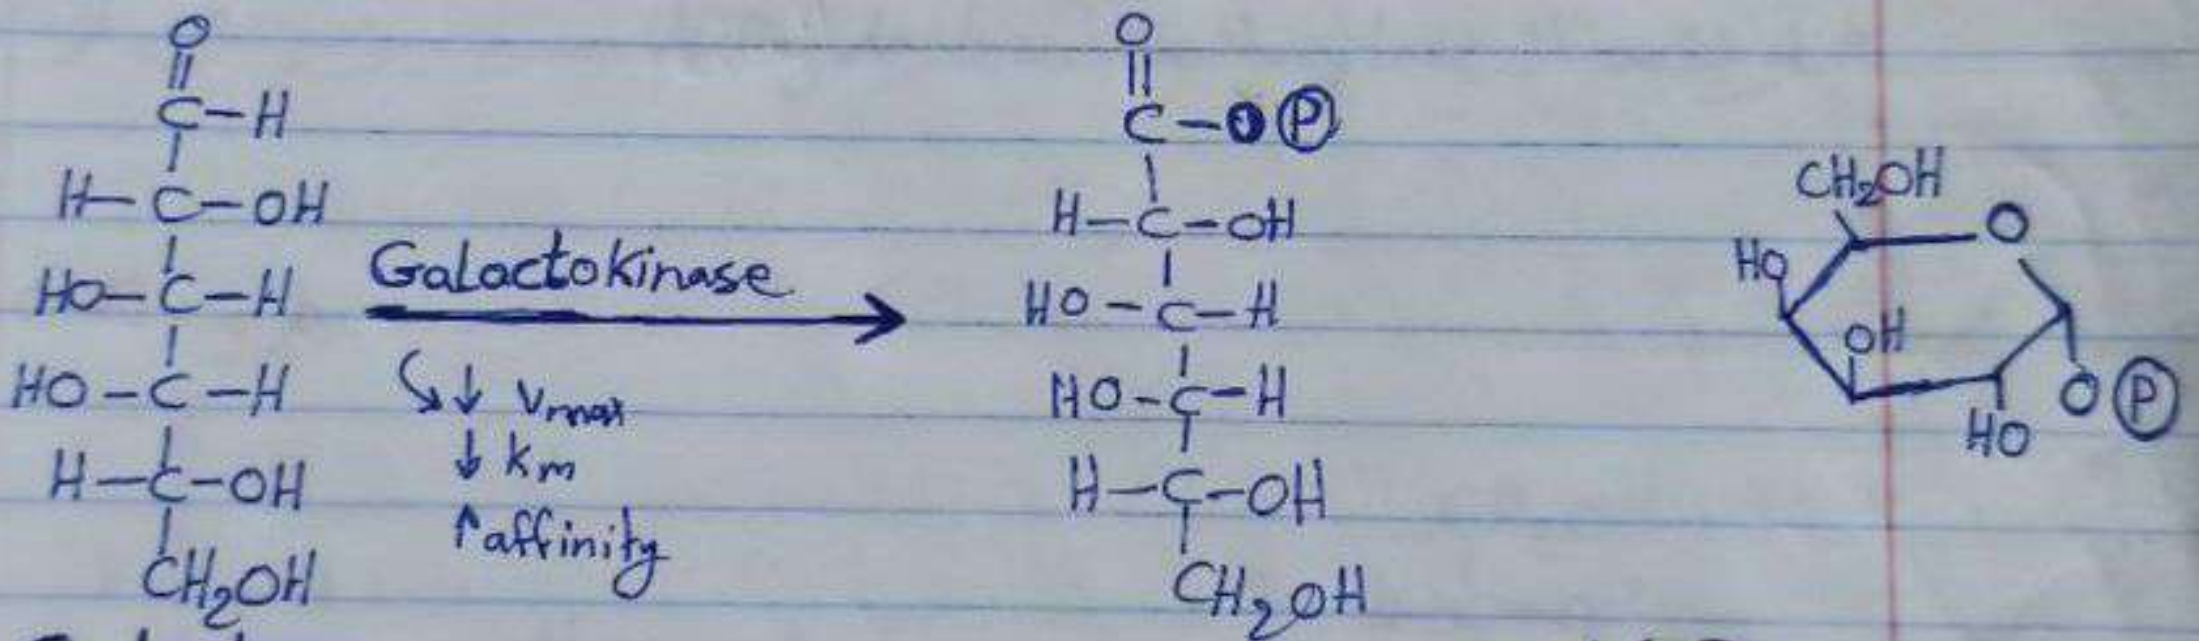 O
C-H
H-C-OH
HO-C-H
HO-C-H
H-C-OH
CH₂OH
Galactokinase
↓ Vmax
↓ Km
↑ affinity
O
C-O Ⓟ
H-C-OH
HO-C-H
HO-C-H
H-C-OH
CH₂OH
CH₂OH
O
HO
OH
HO
O Ⓟ